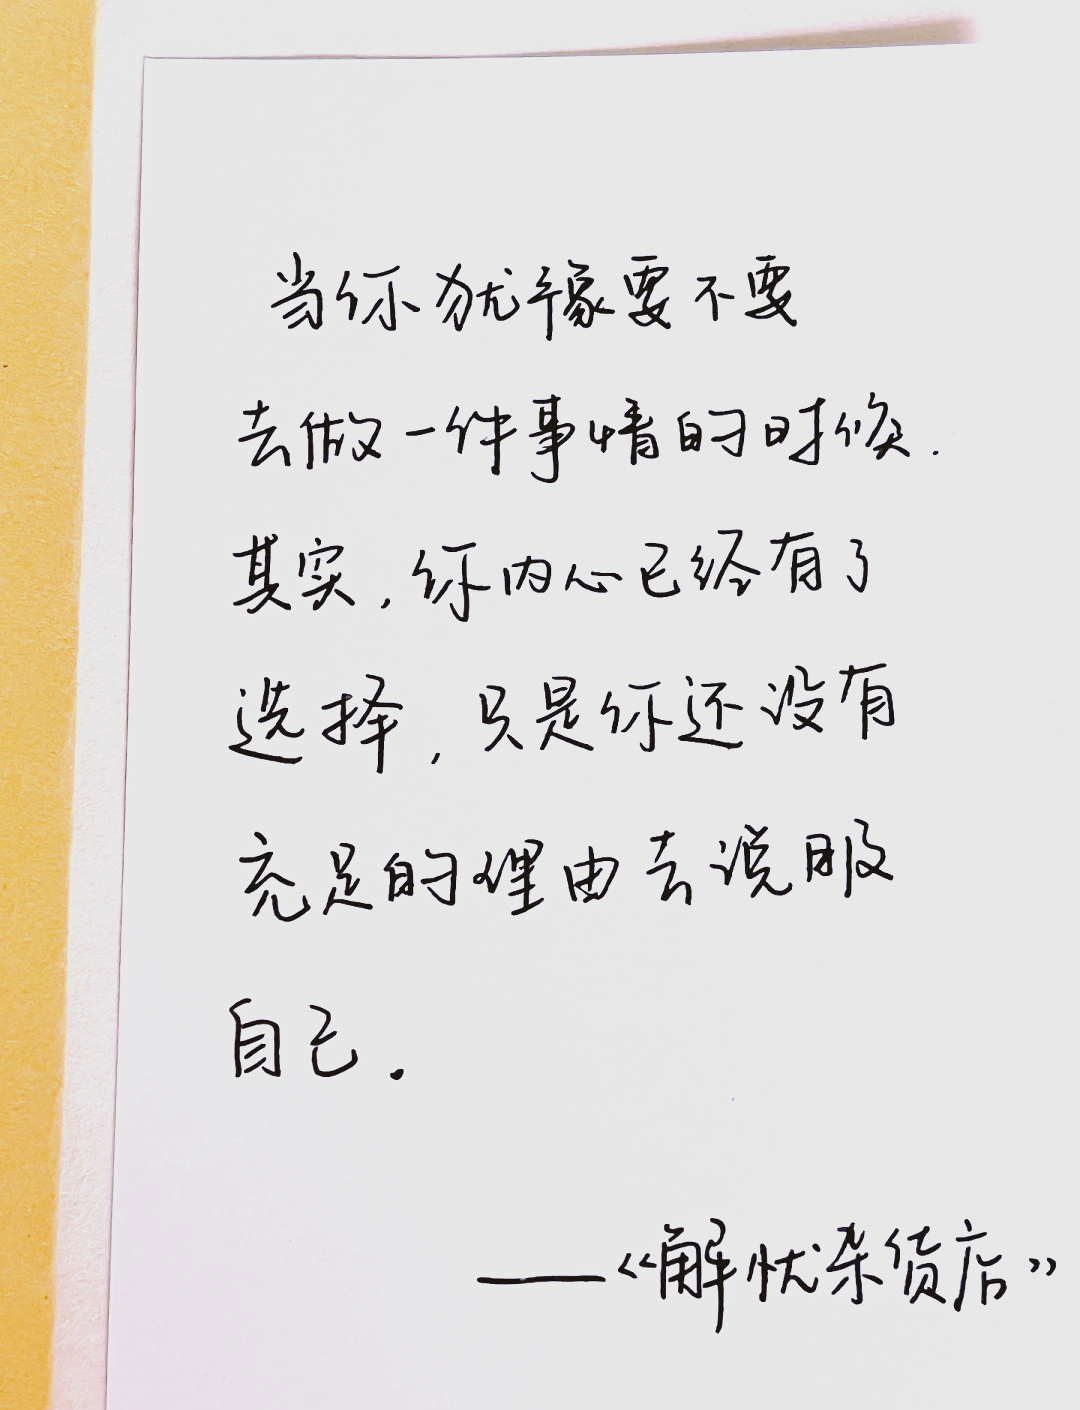 当你犹豫要不要
去做一件事情的时候.
其实,你内心已经有了
选择,只是你还没有
充足的理由去说服
自己.
——《解忧杂货店》